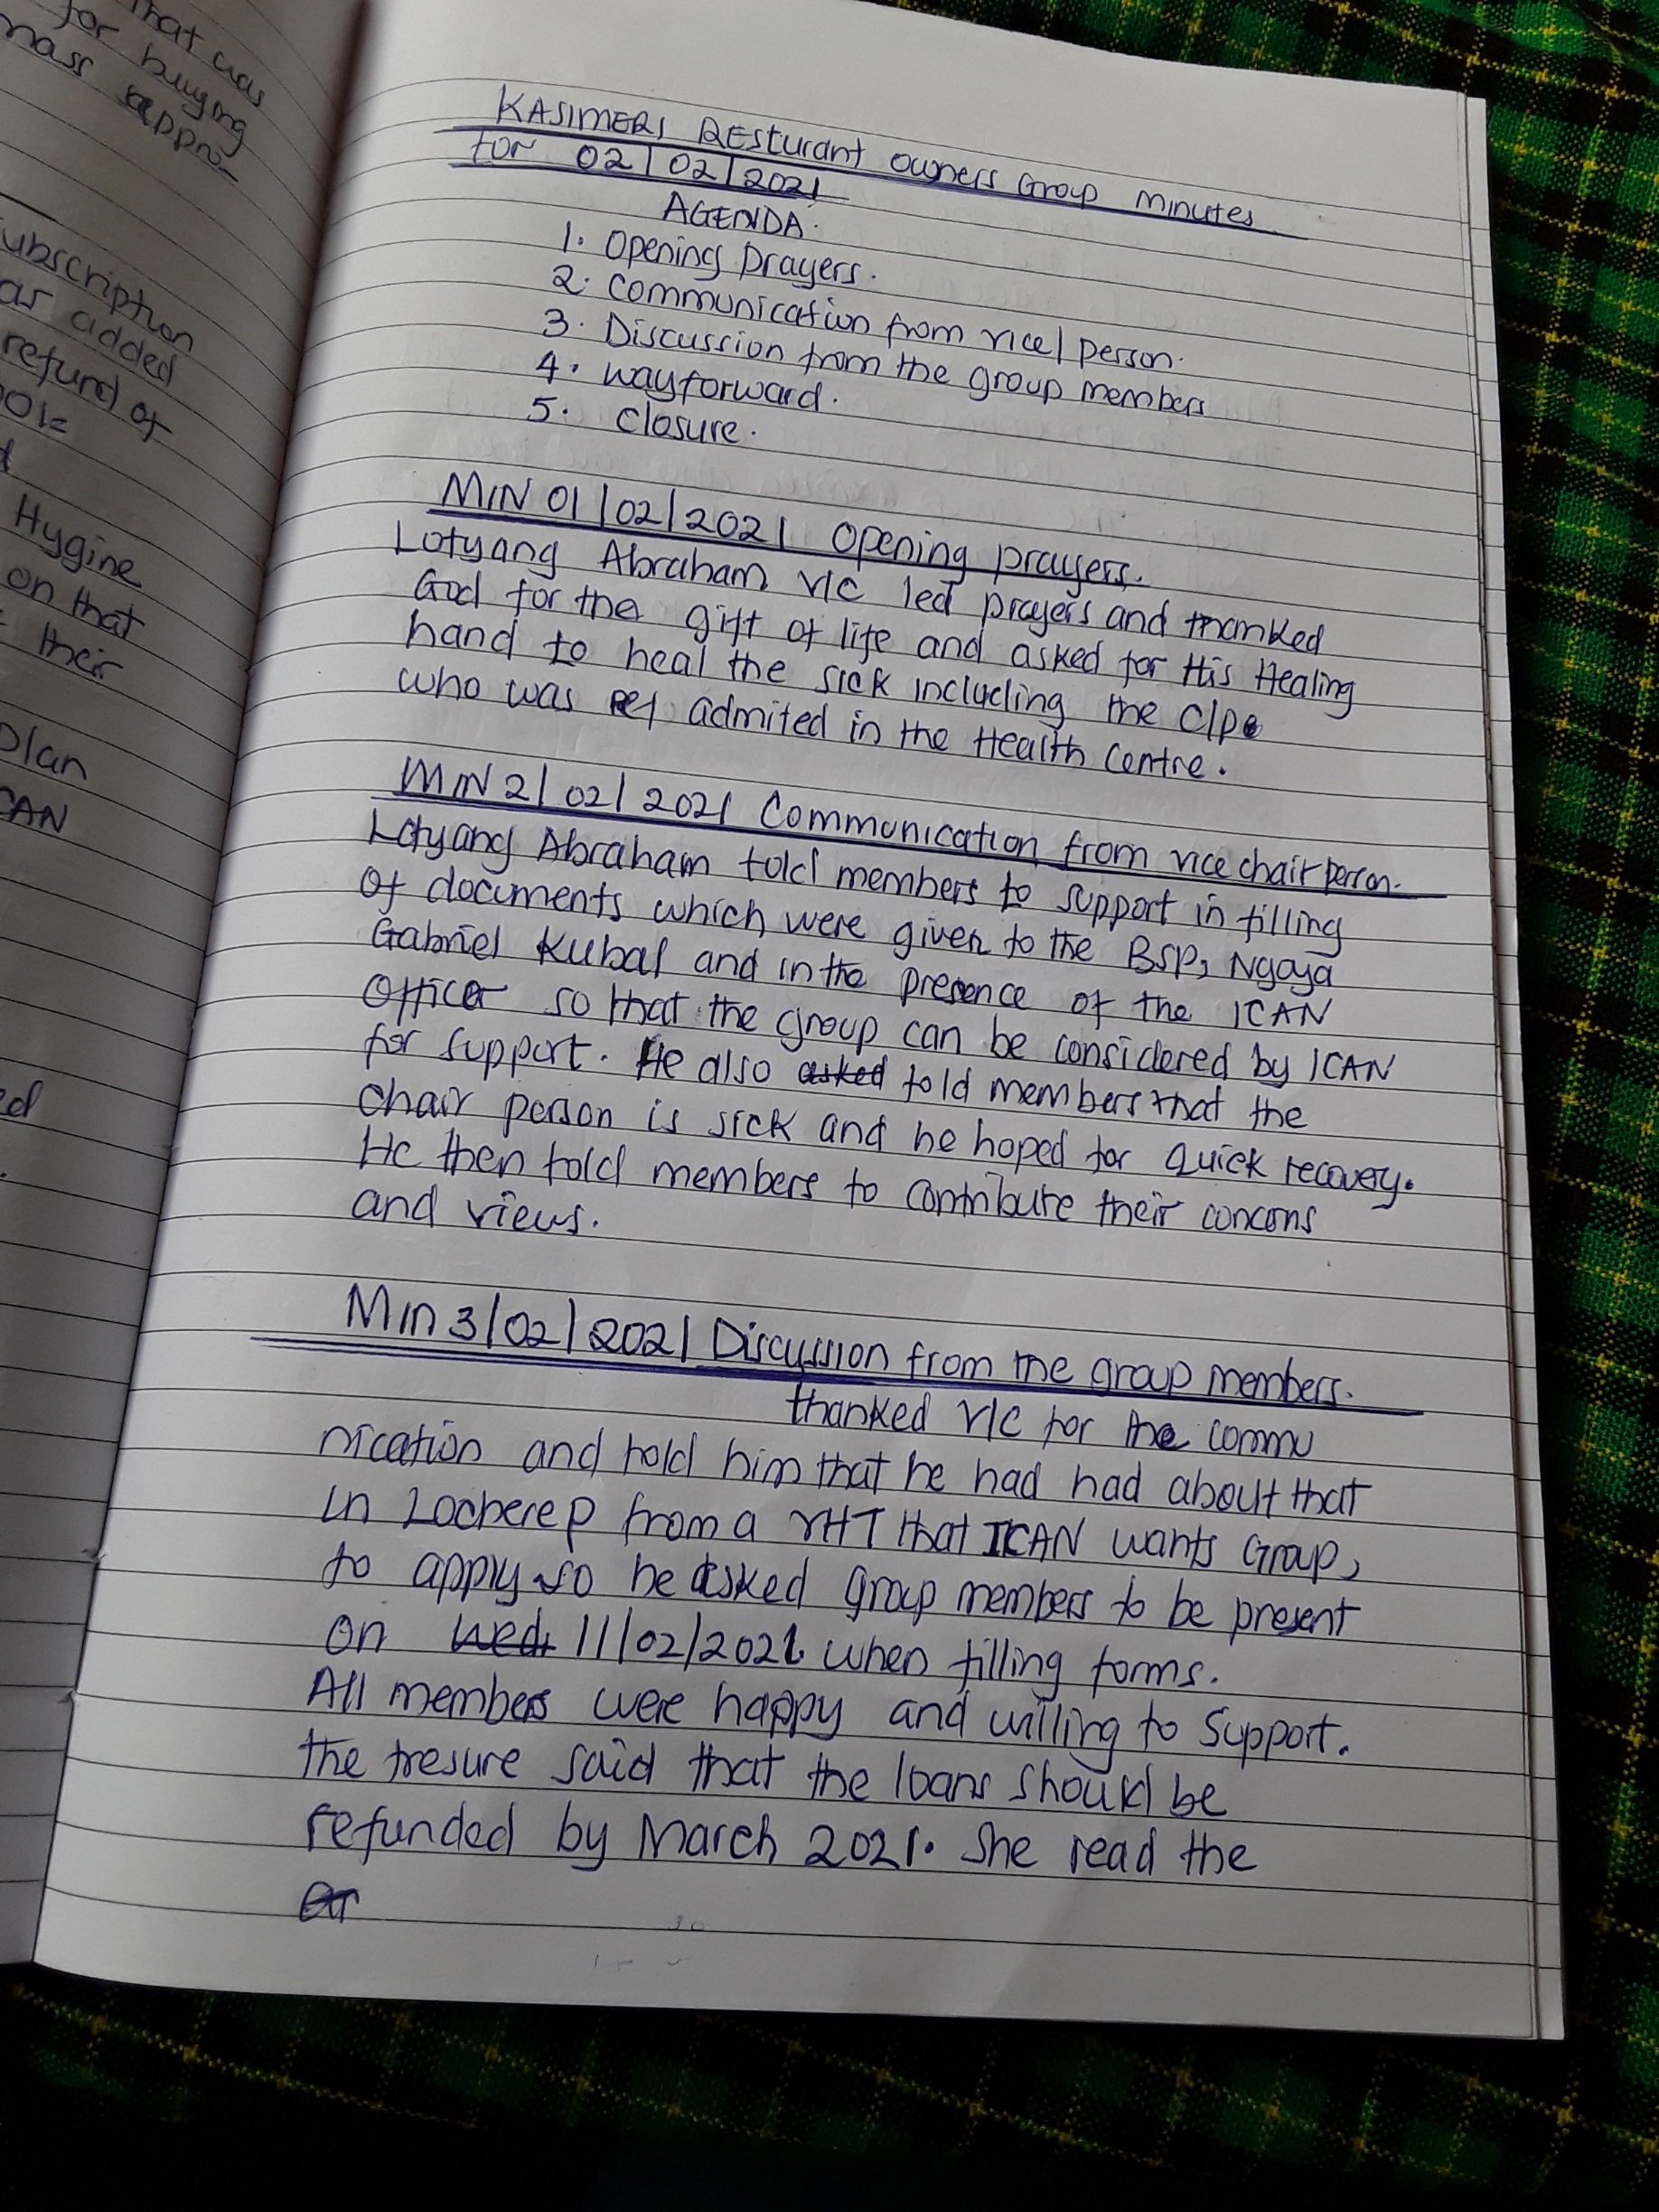 that was
for buying
mass appro-
subscription
as added
refund of
001=
Hygine
on that
their
plan
CAN
KASIMERI RESturant owners Group minutes
for 02/02/2021
AGENDA.
1. Opening prayers.
2. Communication from vice/person.
3. Discussion from the group members
4. wayforward.
5. closure.
MIN 01/02/2021 Opening prayers.
Lotyang Abraham v/c led prayers and thanked
God for the gift of life and asked for His Healing
hand to heal the sick including the c/p
who was admited in the Health Centre.
MIN 2/02/2021 Communication from vice chair person.
Lotyang Abraham told members to support in filling
of documents which were given to the BSP, Ngoya
Gabriel Kubal and in the presence of the ICAN
Officer so that the group can be considered by ICAN
for support. He also asked told members that the
chair person is sick and he hoped for quick recovery.
He then told members to contribute their concerns
and views.
Min 3/02/2021 Discussion from the group members.
thanked v/c for the commu
nication and told him that he had had about that
in Locherep from a VHT that ICAN wants Group,
to apply so he asked group members to be present
on wed, 11/02/2021 when filling forms.
All members were happy and willing to support.
the tresure said that the loans should be
refunded by March 2021. She read the